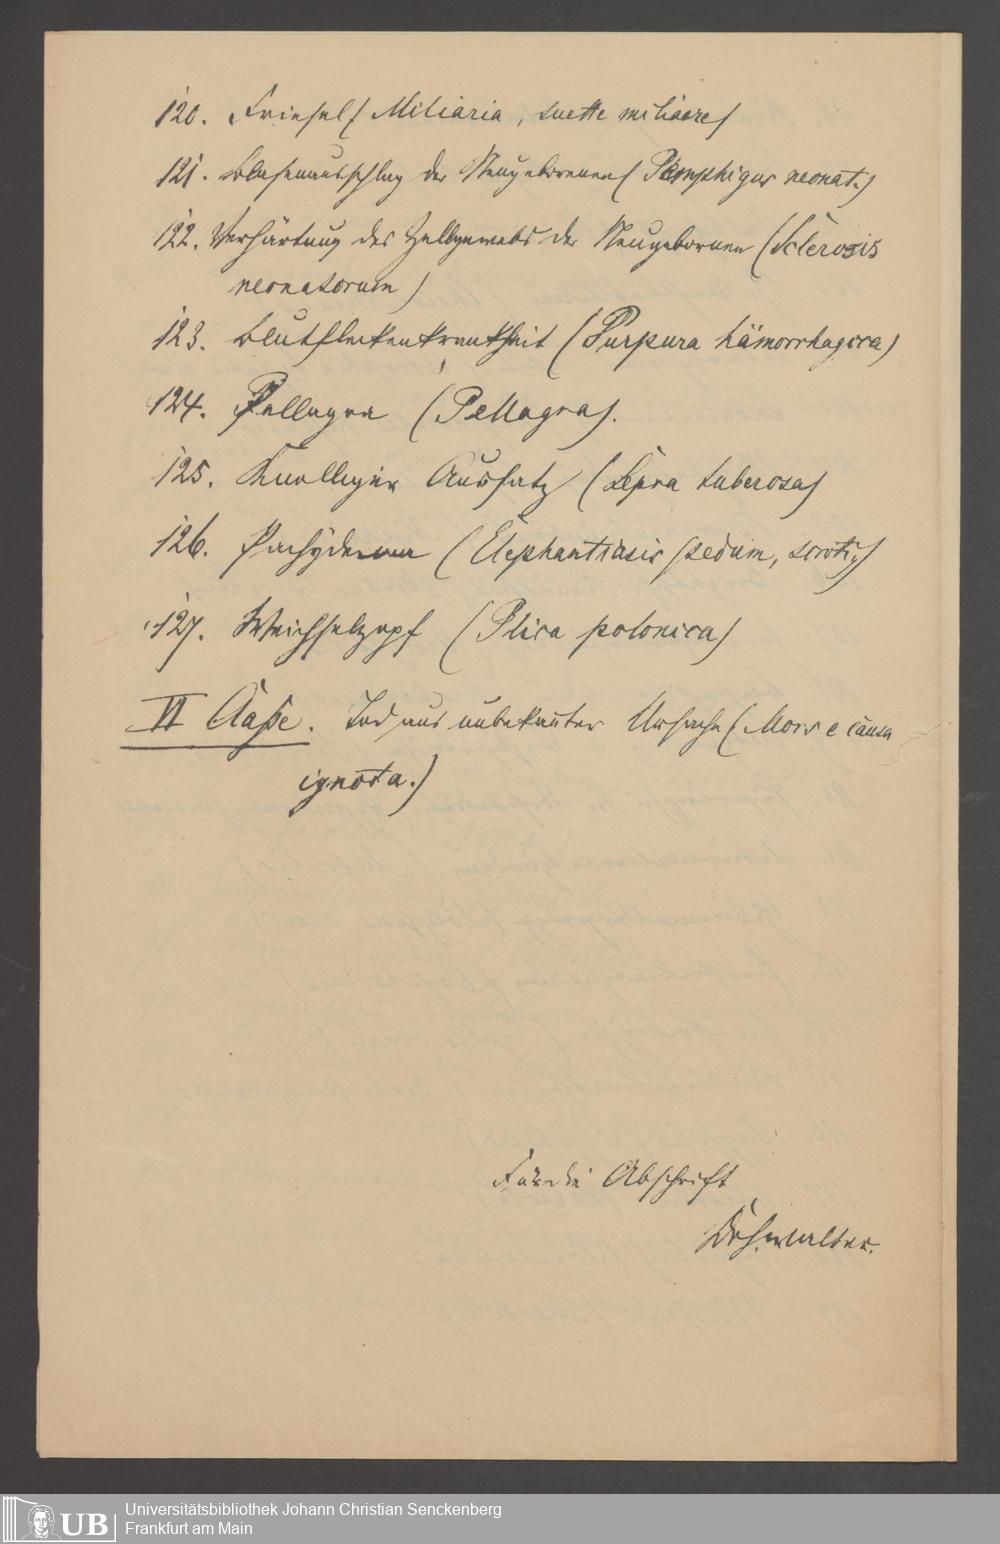 120. Friesel (Miliaria, suette miliaire)
121. Blasenausschlag der Neugeborenen (Pemphigus neonat.)
122. Verhärtung des Zellgewebs der Neugebornen (Sclerosis
neonatorum)
123. Blutfleckenkrankheit (Purpura hämorrhagica)
124. Pellagra (Pellagra).
125. Knolliger Aussatz (Lepra tuberosa)
126. Pachyderma (Elephantiasis pedum, scroti,)
127. Weichselzopf (Plica polonica)
VI Classe. Tod aus unbekannter Ursache (Mors e causa
ignota.)
Für die Abschrift
UB Universitätsbibliothek Johann Christian Senckenberg
Frankfurt am Main